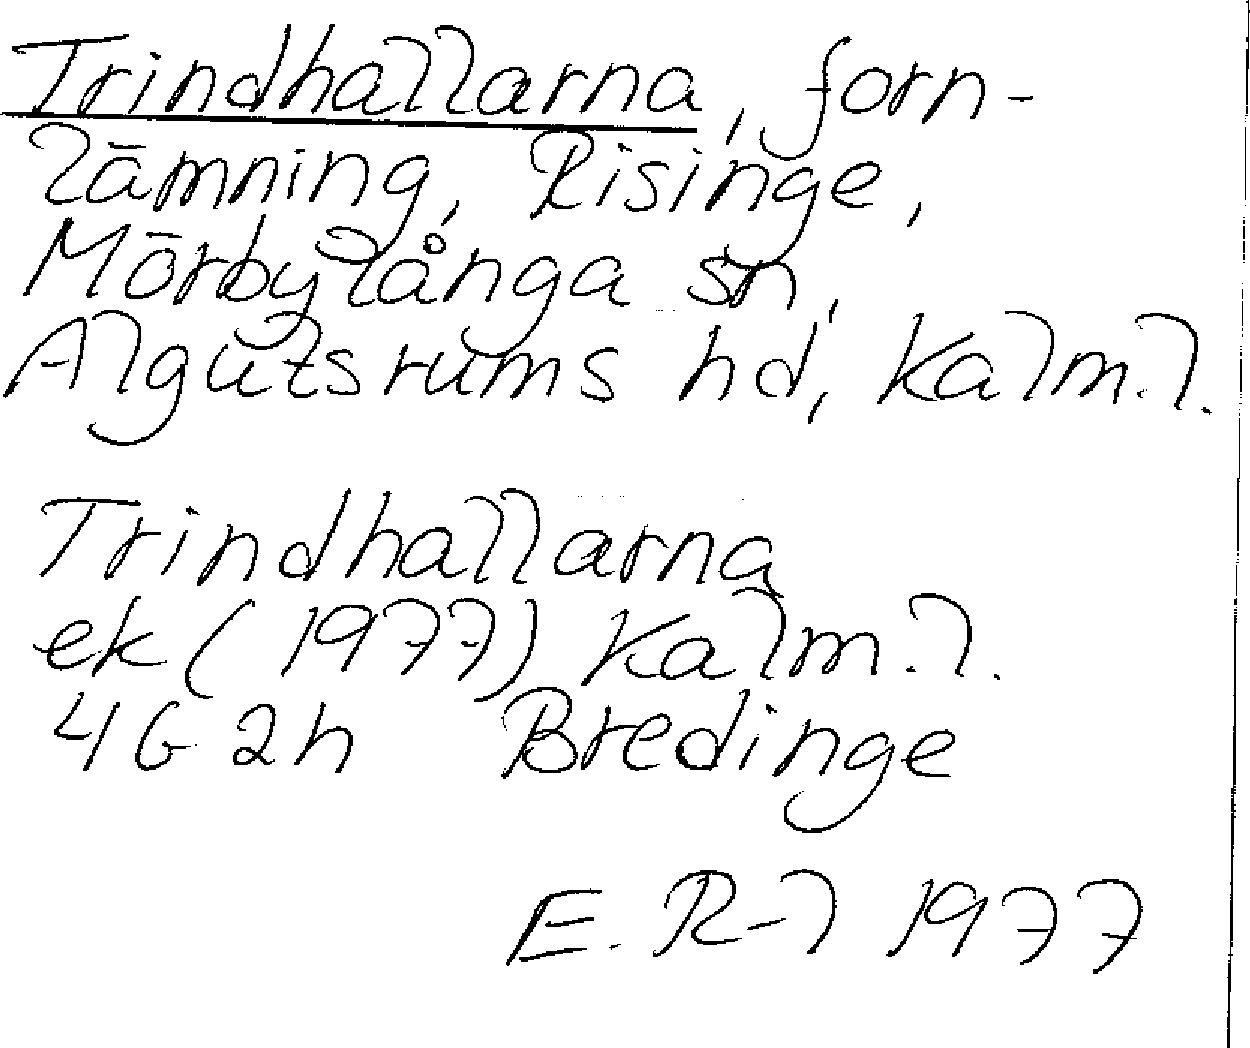 Trindhallarna, forn-
lämning, Risinge,
Mörbylånga sn,
Algutsrums hd, Kalm.l.
Trindhallarna
ek (1977) Kalm.l.
4G 2h Bredinge
E. R-l 1977